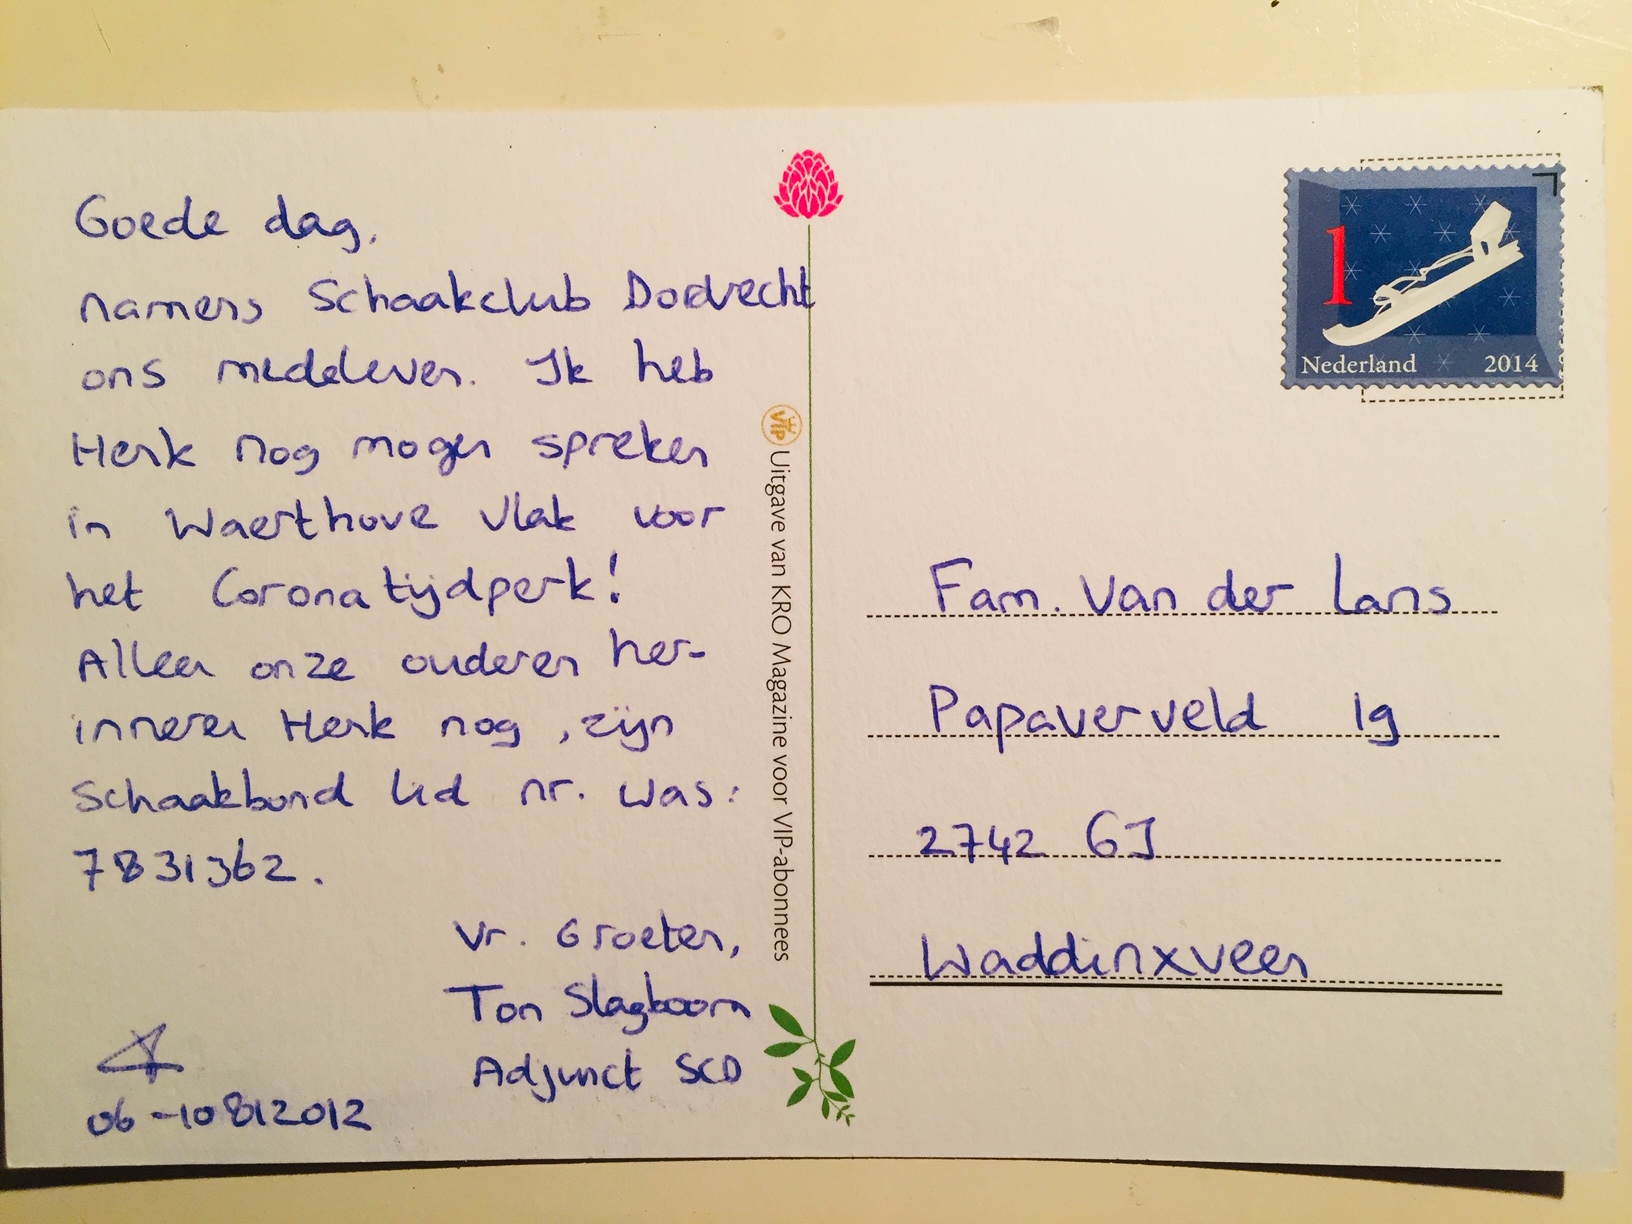 Goede dag,
namens Schaakclub Dordrecht
ons medeleven. Ik heb
Henk nog mogen spreken
in Waerthove vlak voor
het Corona tijdperk!
Alleen onze ouderen her-
inneren Henk nog, zijn
Schaakbond lid nr. was:
7831362.
Vr. Groeten,
Ton Slagboom
Adjunct SCD
06-10812012
VIP Uitgave van KRO Magazine voor VIP-abonnees
1
Nederland 2014
Fam. van der Lans
Papaverveld 19
2742 GJ
Waddinxveen